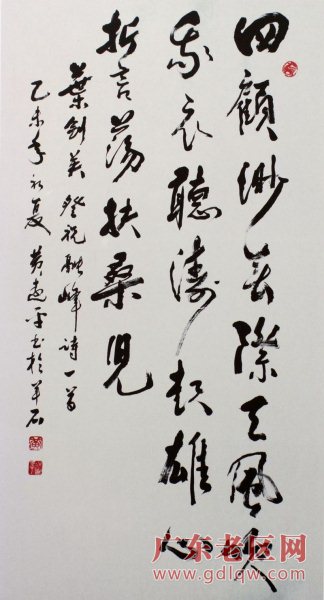 四顧渺无際天風吹
我衣聽濤起雄心
誓蕩扶桑兒
葉劍英登祝融峰詩一首
乙未年初夏黄平书於羊石
广东老区网
www.gdlqw.com